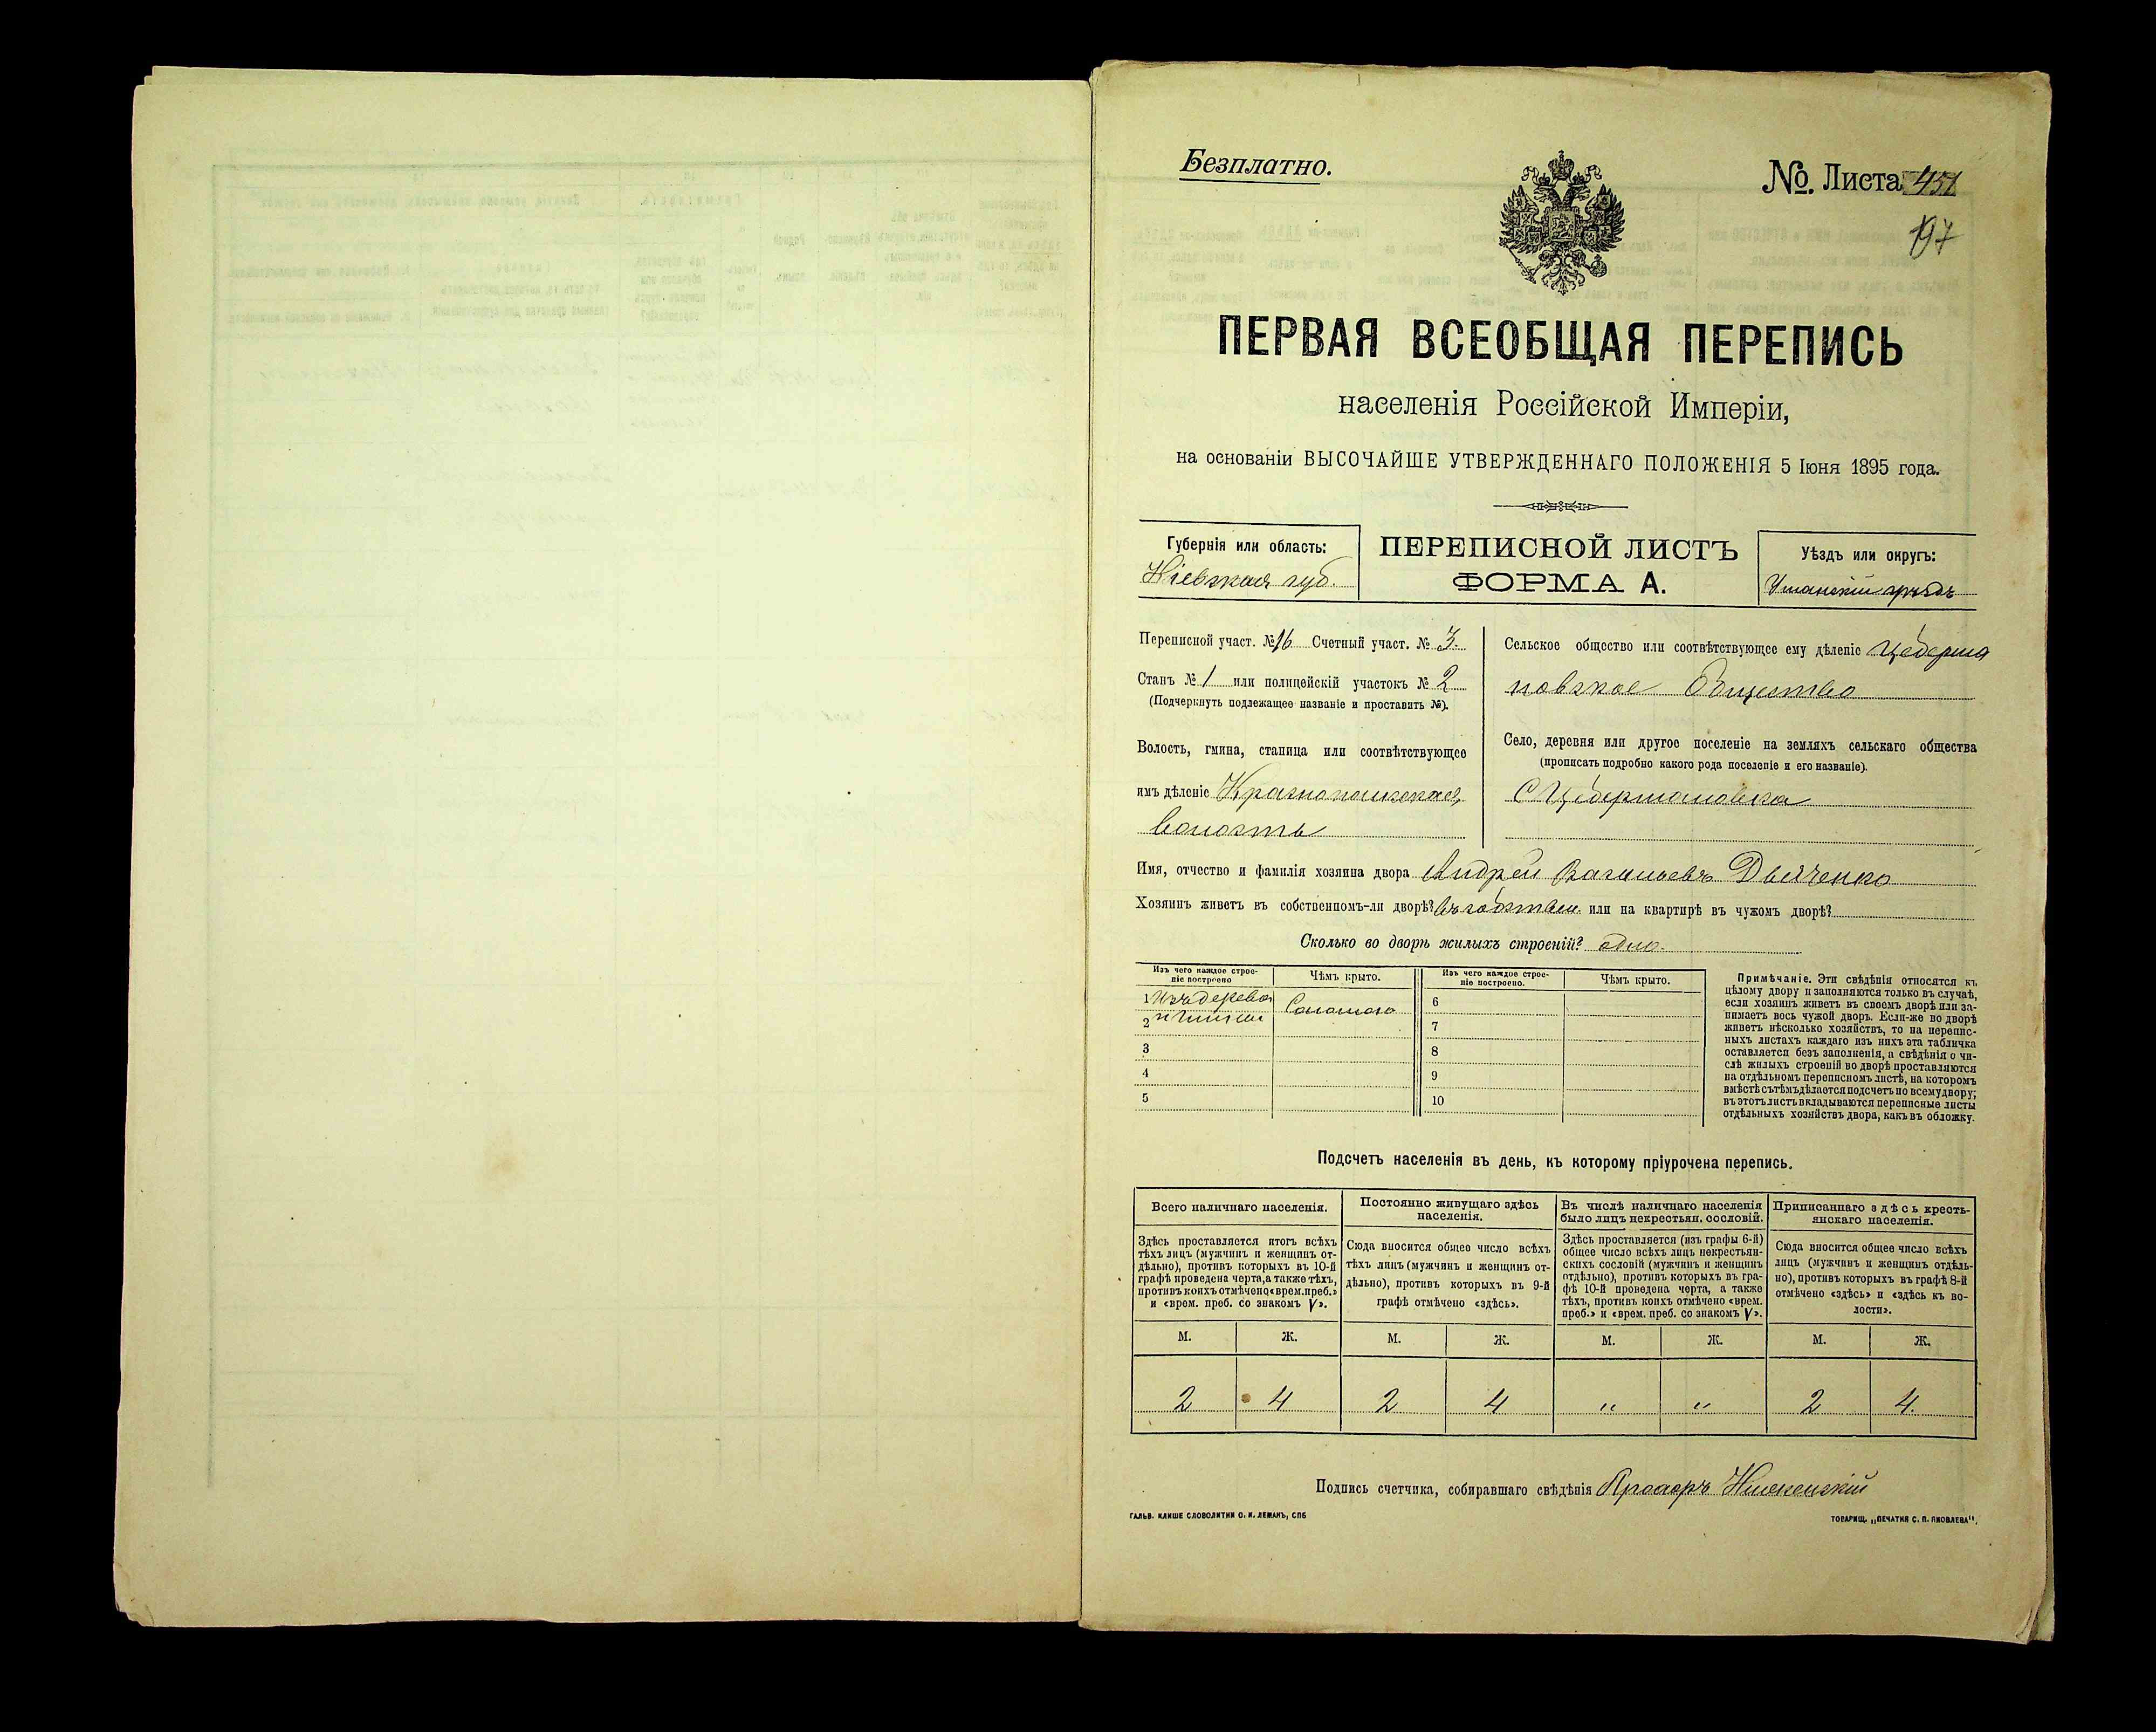 Безплатно.
№ Листа 451
197
ПЕРВАЯ ВСЕОБЩАЯ ПЕРЕПИСЬ
населенія Россійской Имперіи,
на основаніи ВЫСОЧАЙШЕ УТВЕРЖДЕННАГО ПОЛОЖЕНІЯ 5 Іюня 1895 года.
Губернія или область:
Кіевская губ.
ПЕРЕПИСНОЙ ЛИСТЪ
ФОРМА А.
Уѣздъ или округъ:
Уманскій уѣздъ
Переписной участ. № 16 Счетный участ. № 3.
Станъ № 1 или полицейскій участокъ № 2
(Подчеркнуть подлежащее названіе и проставить №).
Волость, гмина, станица или соотвѣтствующее
имъ дѣленіе Краснопольская
волость
Сельское общество или соотвѣтствующее ему дѣленіе Цеберма
новское Общество
Село, деревня или другое поселеніе на земляхъ сельскаго общества
(прописать подробно какого рода поселеніе и его названіе).
С Цебермановка
Имя, отчество и фамилія хозяина двора Андрей Васильевъ Дьяченко
Хозяинъ живетъ въ собственномъ-ли дворѣ? въ собствен. или на квартирѣ въ чужомъ дворѣ?
Сколько во дворѣ жилыхъ строеній? одно.
Изъ чего каждое строе-
ніе построено
Чѣмъ крыто.
Изъ чего каждое строе-
ніе построено.
Чѣмъ крыто.
1 Изъ дерева Соломою
2 и глины
3
4
5
6
7
8
9
10
Примѣчаніе. Эти свѣдѣнія относятся къ
цѣлому двору и заполняются только въ случаѣ,
если хозяинъ живетъ въ своемъ дворѣ или за-
нимаетъ весь чужой дворъ. Если-же во дворѣ
живетъ нѣсколько хозяйствъ, то на перепис-
ныхъ листахъ каждаго изъ нихъ эта табличка
оставляется безъ заполненія, а свѣдѣнія о чи-
слѣ жилыхъ строеній во дворѣ проставляются
на отдѣльномъ переписномъ листѣ, на которомъ
вмѣстѣ съ тѣмъ дѣлается подсчетъ по всему двору;
въ этотъ листъ вкладываются переписные листы
отдѣльныхъ хозяйствъ двора, какъ въ обложку.
Подсчетъ населенія въ день, къ которому пріурочена перепись.
Всего наличнаго населенія.
Здѣсь проставляется итогъ всѣхъ
тѣхъ лицъ (мужчинъ и женщинъ от-
дѣльно), противъ которыхъ въ 10-й
графѣ проведена черта, а также тѣхъ,
противъ коихъ отмѣчено «врем. преб.»
и «врем. преб. со знакомъ V».
Постоянно живущаго здѣсь
населенія.
Сюда вносится общее число всѣхъ
тѣхъ лицъ (мужчинъ и женщинъ от-
дѣльно), противъ которыхъ въ 9-й
графѣ отмѣчено «здѣсь».
Въ числѣ наличнаго населенія
было лицъ некрестьян. сословій.
Здѣсь проставляется (изъ графы 6-й)
общее число всѣхъ лицъ некрестьян-
скихъ сословій (мужчинъ и женщинъ
отдѣльно), противъ которыхъ въ гра-
фѣ 10-й проведена черта, а также
тѣхъ, противъ коихъ отмѣчено «врем.
преб.» и «врем. преб. со знакомъ V».
Приписаннаго здѣсь кресть-
янскаго населенія.
Сюда вносится общее число всѣхъ
лицъ (мужчинъ и женщинъ отдѣль-
но), противъ которыхъ въ графѣ 8-й
отмѣчено «здѣсь» и «здѣсь къ во-
лости».
М. Ж. М. Ж. М. Ж. М. Ж.
2 4 2 4 " " 2 4.
Подпись счетчика, собиравшаго свѣдѣнія
ГАЛЬВ. КЛИШЕ СЛОВОЛИТНИ О. И. ЛЕМАНЪ, СПБ
ТОВАРИЩ. „ПЕЧАТНЯ С. П. ЯКОВЛЕВА".